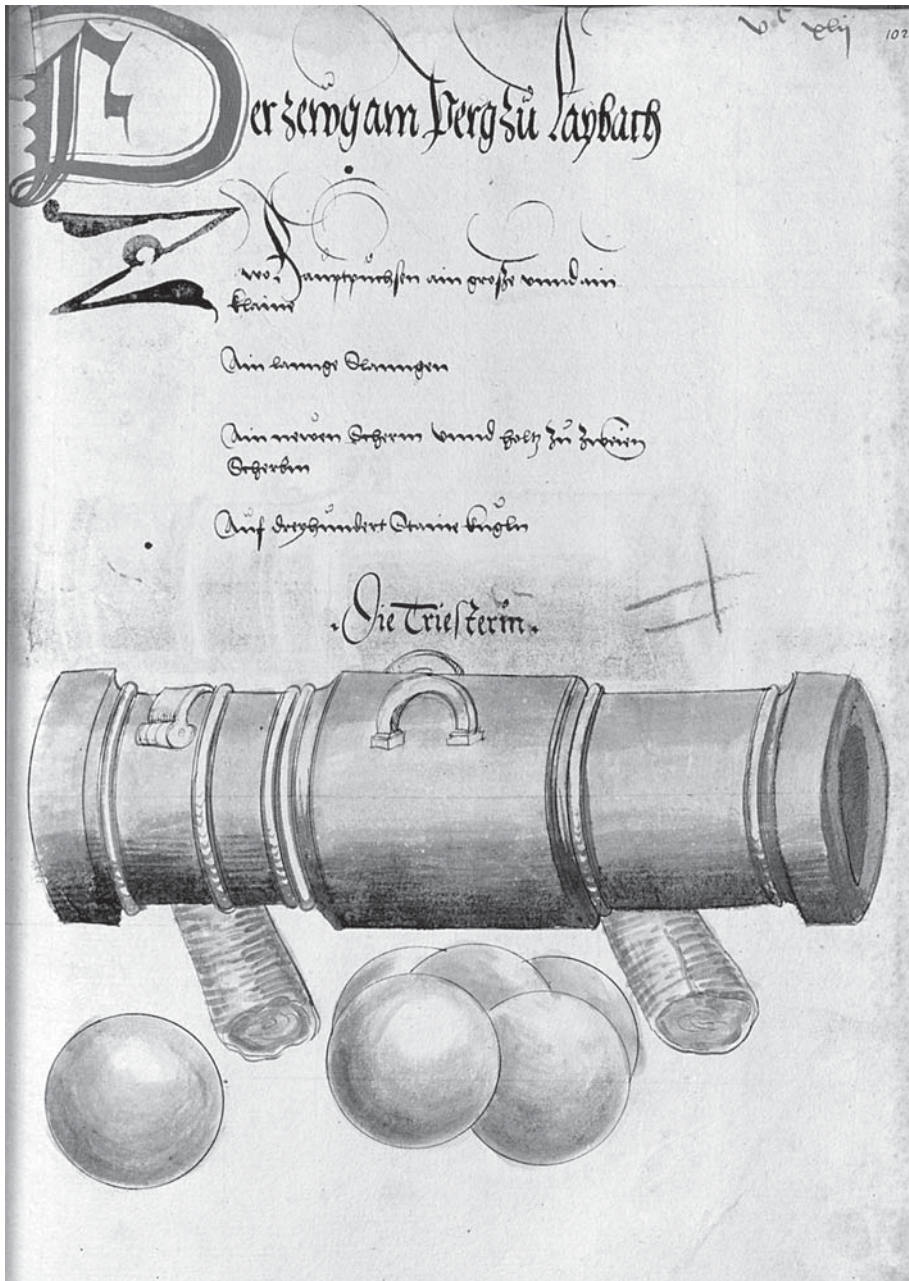 Vol xlij
102
Der zewg am Perg zů Laybach
Zwo Haůptpůchsen ain große vnnd ain
klaine
Ain lannge Slanngen
Ain newen Scherm vnnd holtz zů zweien
Scherbm
Aůf dreyhůndert Staine kůgln
.Die Triesterin.